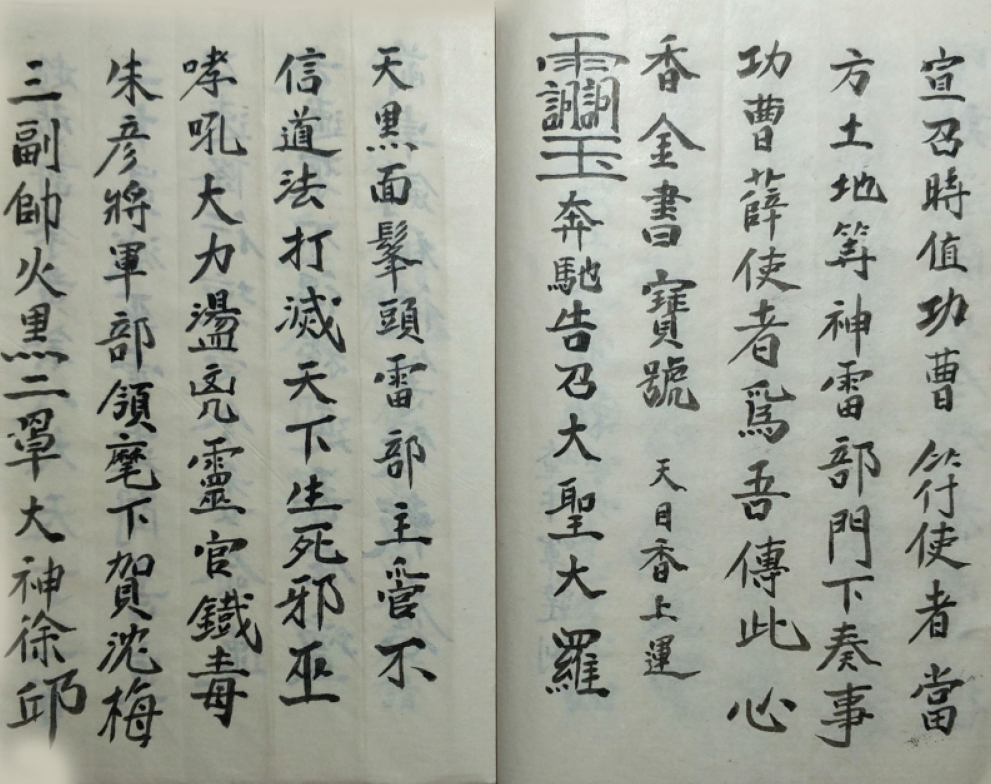 宣召時值功曹符使者當
方土地等神雷部門下奏事
功曹薛使者爲吾傳此心
香金書寶號天目香上運
奔馳告召大聖大羅
天黑面髼頭雷部主管不
信道法打滅天下生死邪巫
哮吼大力盪兇靈官鐵毒
朱彥將軍部領麾下賀沈梅
三副帥火黑二罩大神徐邱